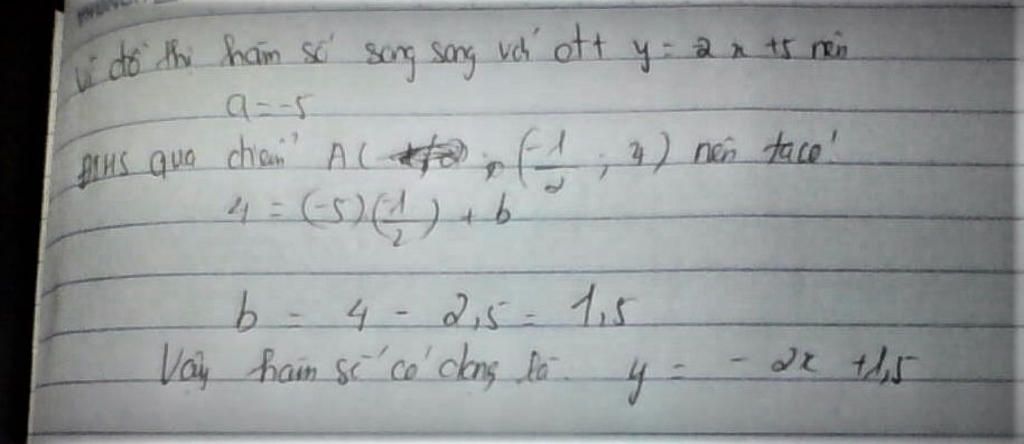 Vì đồ thị hàm số song song với đtt y = 2x + 5 nên
a = -5
ĐTHS qua điểm A( ; (-1/2 ; 4) nên ta có
4 = (-5)(-1/2) + b
b = 4 - 2,5 = 1,5
Vậy hàm số có dạng là y = -2x + 1,5